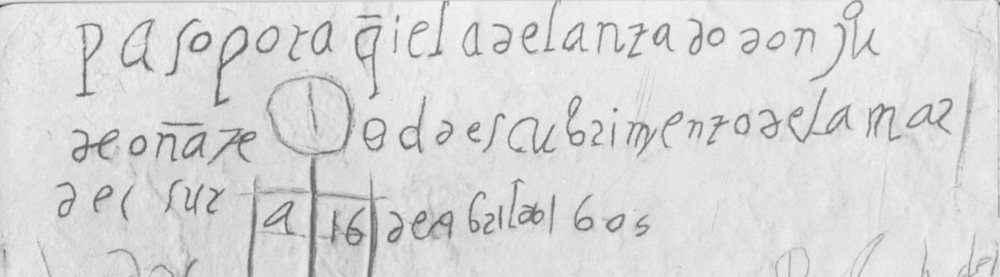 paso por aq̄i el adelantado don jũ
de oñate del descubrimento de la mar
del sur a 16 de abril de 1605